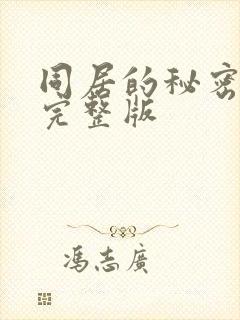 同居的秘密
完整版
冯志广